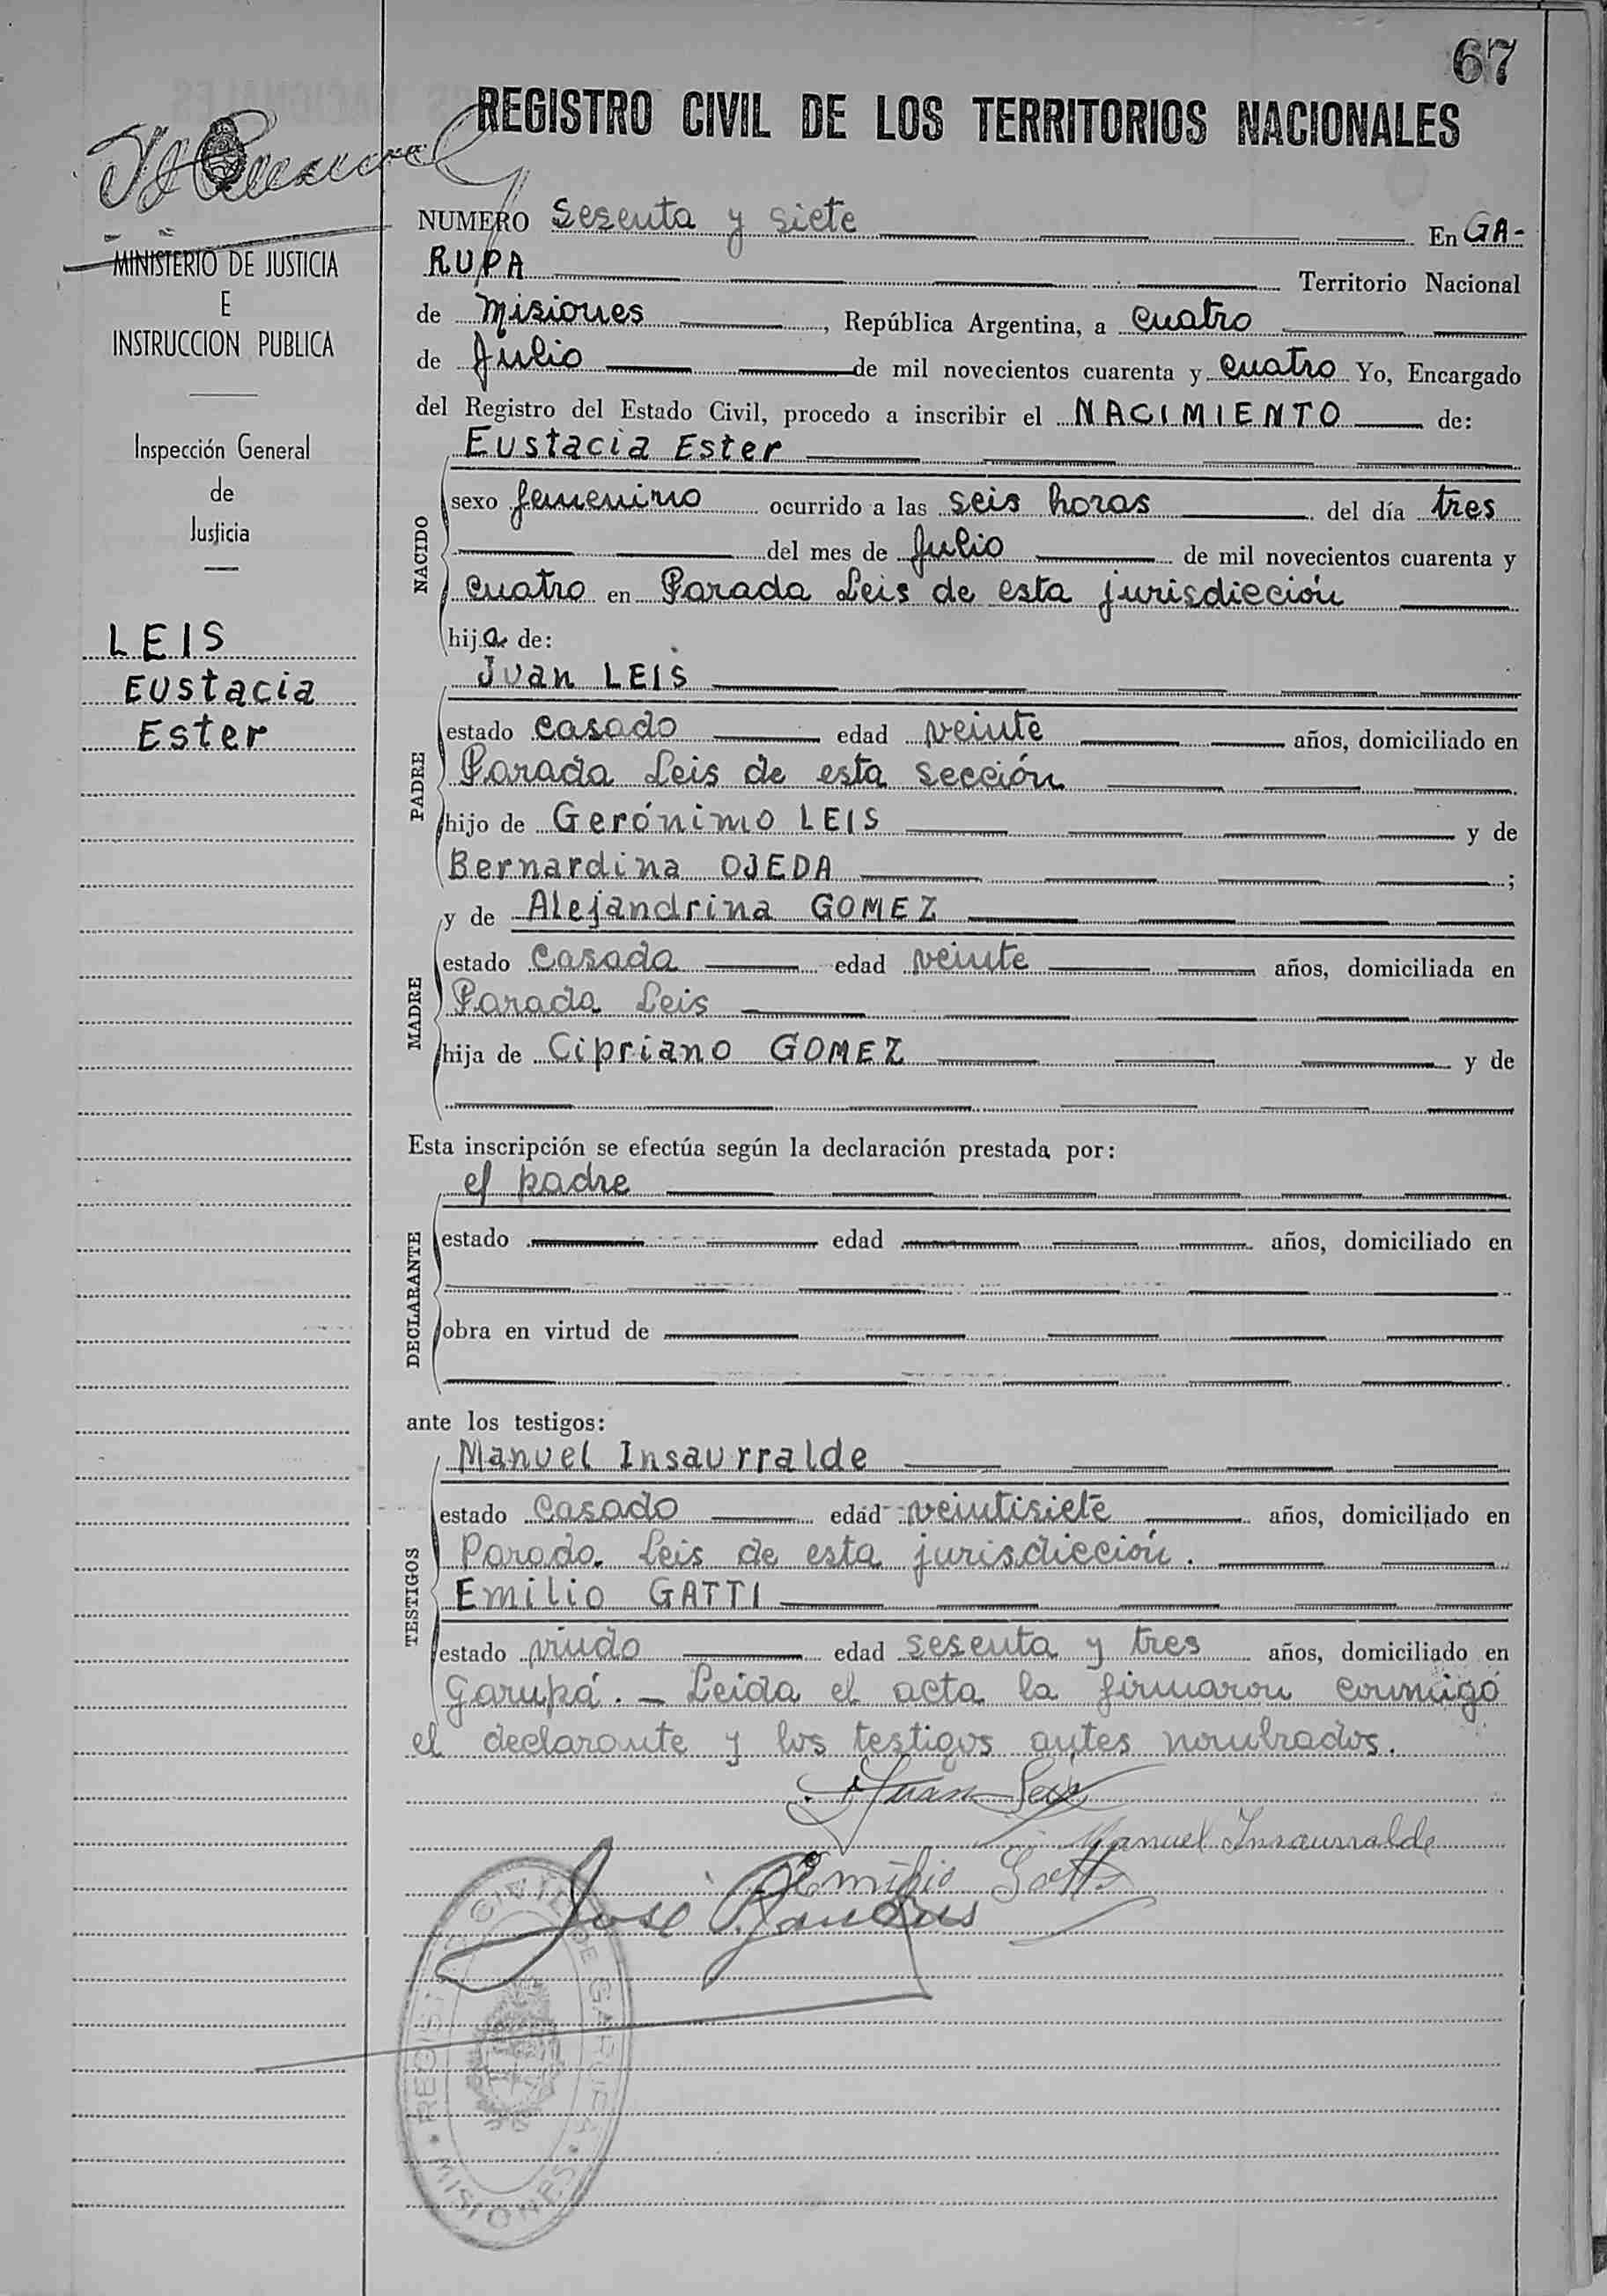 67
REGISTRO CIVIL DE LOS TERRITORIOS NACIONALES
MINISTERIO DE JUSTICIA
E
INSTRUCCION PUBLICA
Inspección General
de
Justicia
LEIS
Eustacia
Ester
NUMERO Sesenta y siete En GA-
RUPA Territorio Nacional
de Misiones, República Argentina, a cuatro
de Julio de mil novecientos cuarenta y cuatro Yo, Encargado
del Registro del Estado Civil, procedo a inscribir el NACIMIENTO de:
Eustacia Ester
NACIDO
sexo femenino ocurrido a las seis horas del día tres
del mes de Julio de mil novecientos cuarenta y
cuatro en Parada Leis de esta jurisdicción
hija de:
Juan LEIS
PADRE
estado casado edad veinte años, domiciliado en
Parada Leis de esta sección
hijo de Gerónimo LEIS y de
Bernardina OJEDA ;
y de Alejandrina GOMEZ
MADRE
estado casada edad veinte años, domiciliada en
Parada Leis
hija de Cipriano GOMEZ y de
Esta inscripción se efectúa según la declaración prestada por:
el padre
DECLARANTE
estado edad años, domiciliado en
obra en virtud de
ante los testigos:
Manuel Insaurralde
TESTIGOS
estado casado edad veintisiete años, domiciliado en
Parada Leis de esta jurisdicción.
Emilio GATTI
estado viudo edad sesenta y tres años, domiciliado en
Garupá. - Leida el acta la firmaron conmigo
el declarante y los testigos antes nombrados.
Juan Leis
Manuel Insaurralde
Emilio Gatti
José
REGISTRO CIVIL DE GARUPA
MISIONES